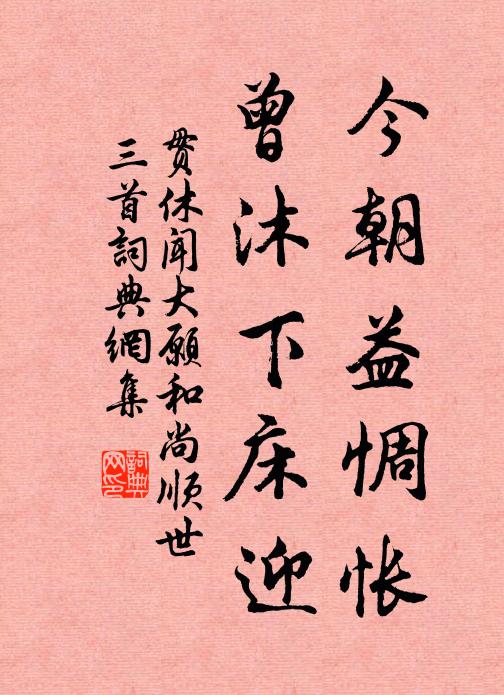 今朝益惆怅
曾沐下床迎
贯休闻大愿和尚顺世
三首詞典網集
詞典网印